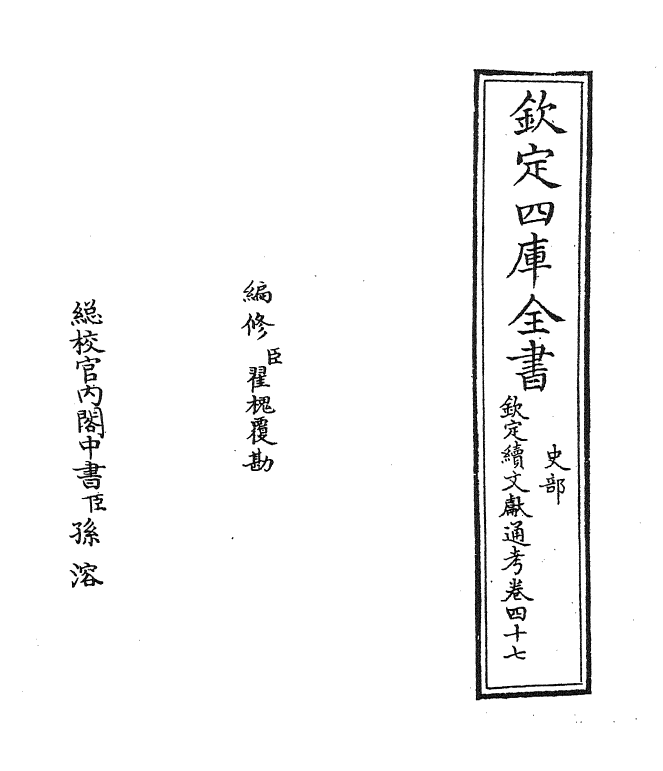 欽定四庫全書
史部
欽定續文獻通考卷四十七
編修臣翟槐覆勘
總校官内閣中書臣孫溶